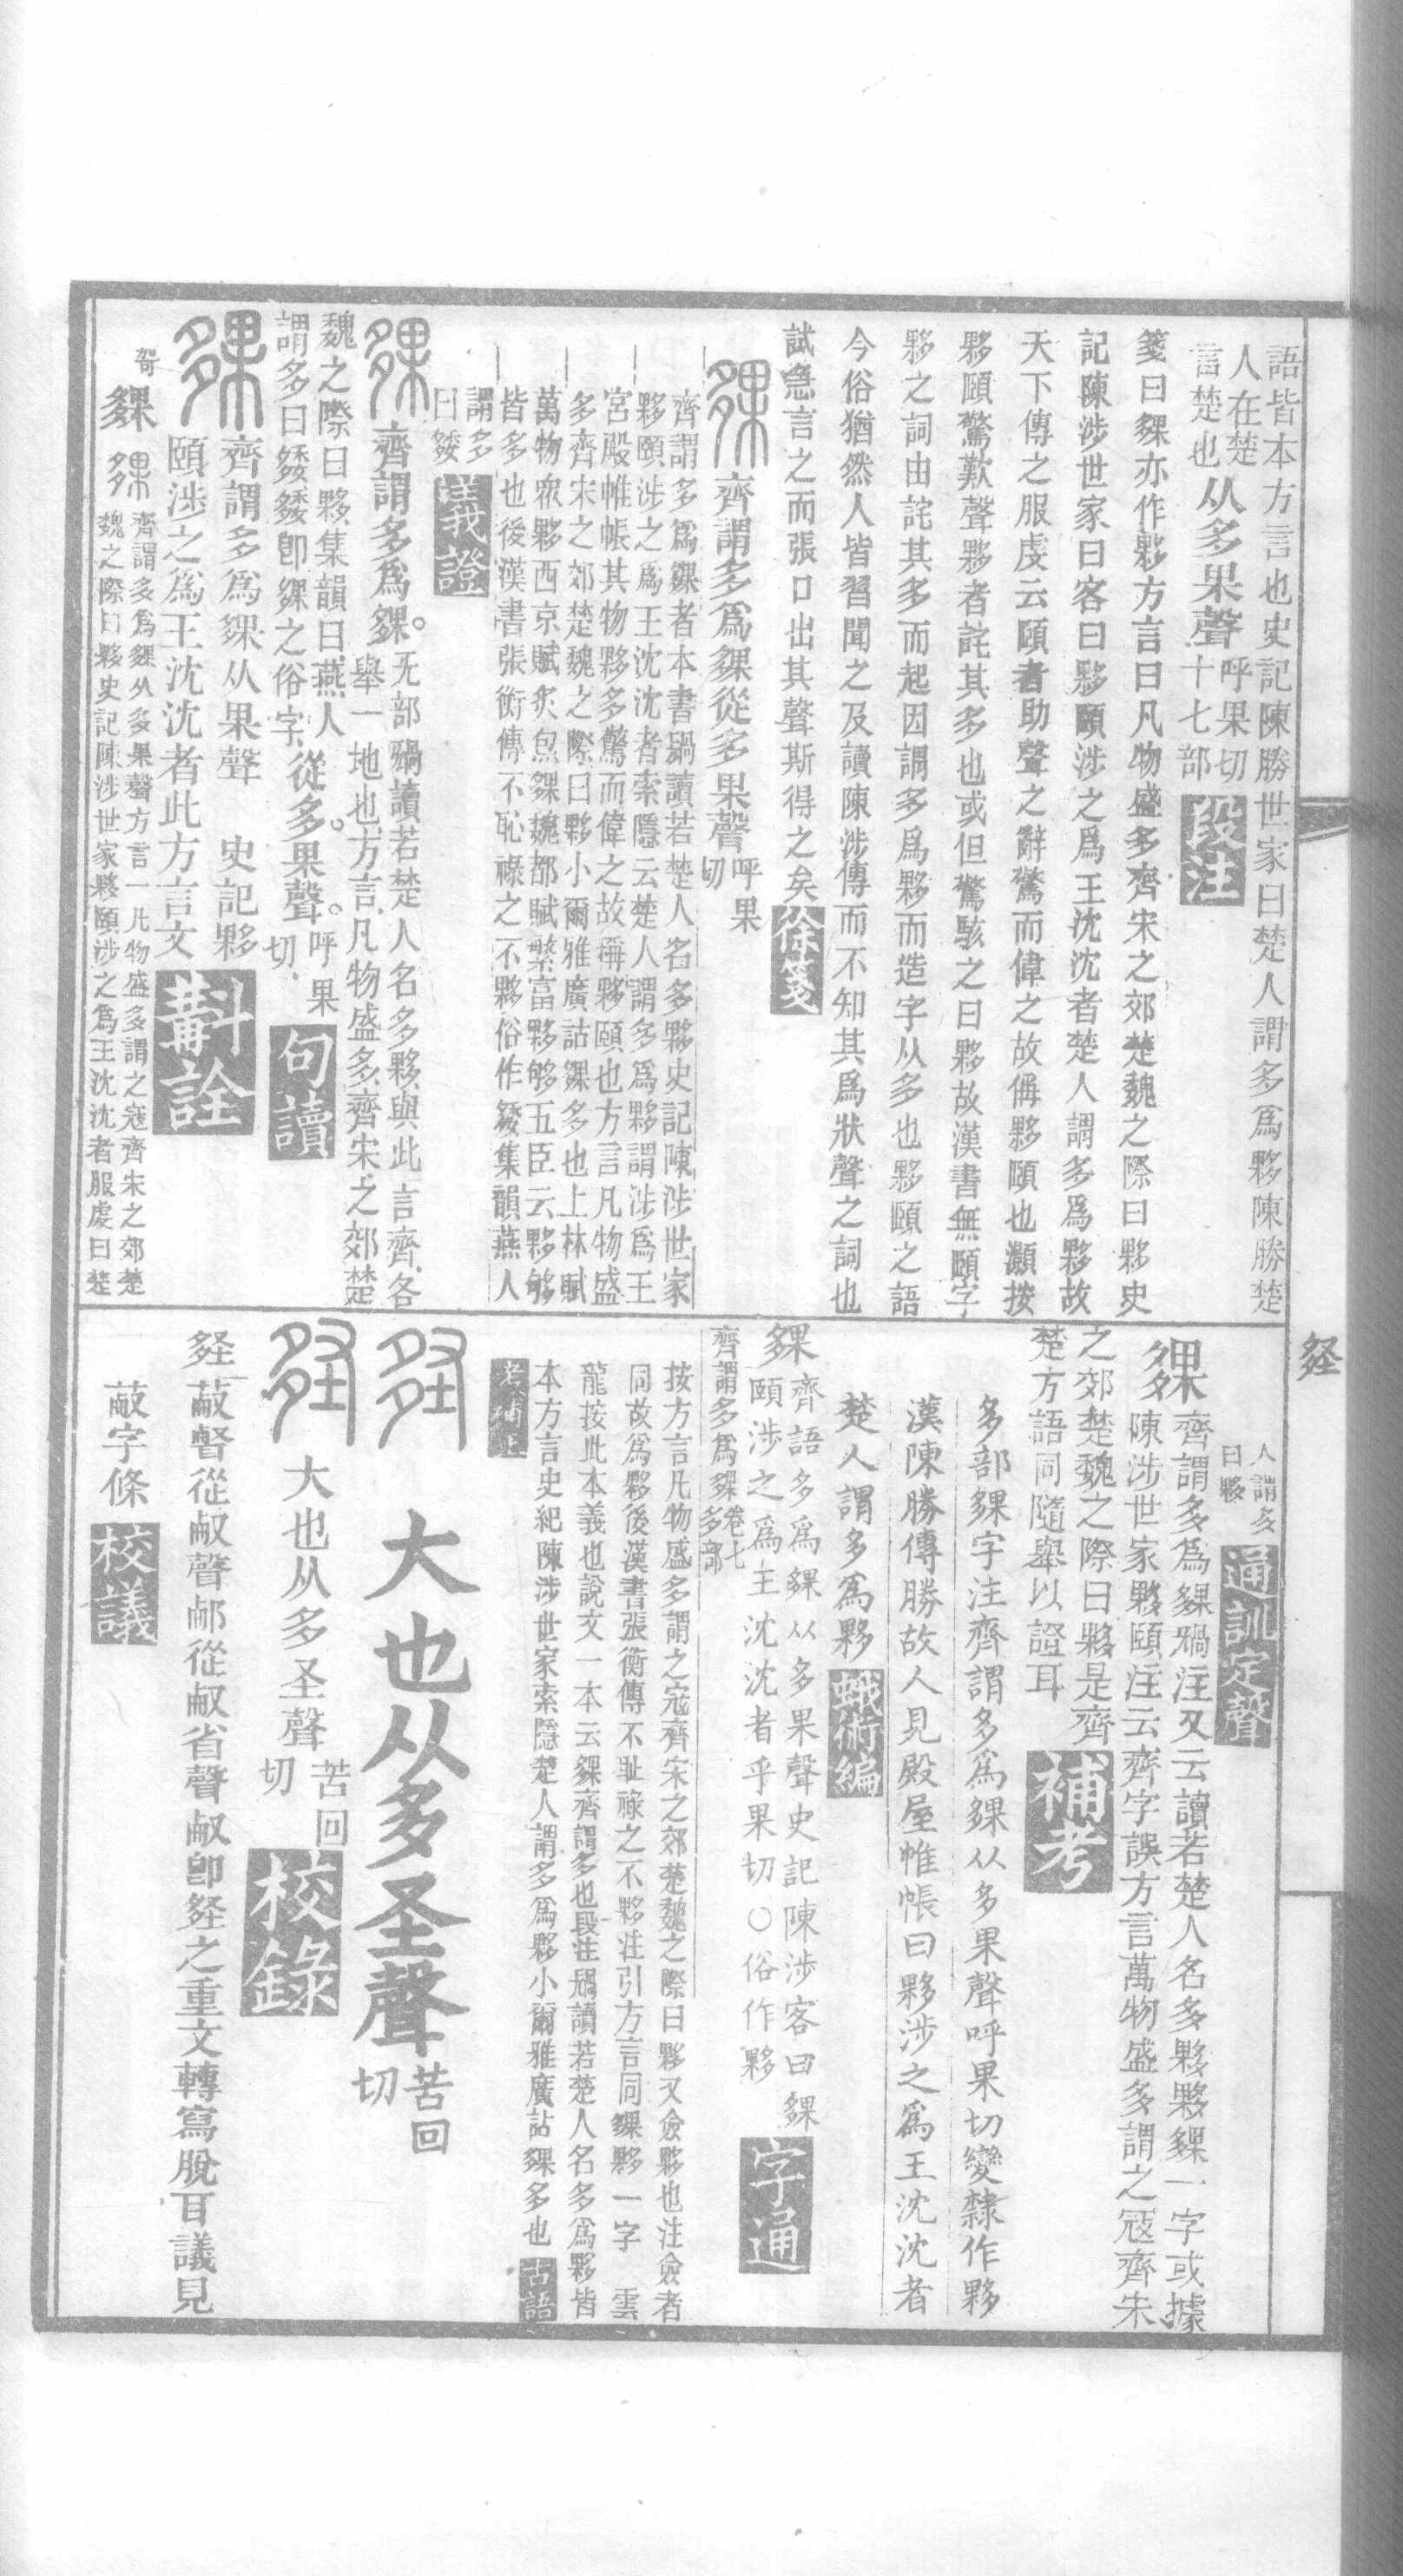 語皆本方言也史記陳勝世家曰楚人謂多爲夥陳勝楚
人在楚
言楚也从多果聲呼果切
十七部段注
箋曰夥亦作夥方言曰凡物盛多齊宋之郊楚魏之際曰夥史
記陳涉世家曰客曰夥頤涉之爲王沈沈者楚人謂多爲夥故
天下傳之服虔云頤者助聲之辭驚而偉之故偁夥頤也灝按
夥頤驚歎聲夥者詫其多也或但驚駭之曰夥故漢書無頤字
夥之詞由詫其多而起因謂多爲夥而造字从多也夥頤之語
今俗猶然人皆習聞之及讀陳涉傳而不知其爲狀聲之詞也
試急言之而張口出其聲斯得之矣徐箋
䴹齊謂多爲䴹從多果聲呼果
切
齊謂多爲䴹者本書䴹讀若楚人名多夥史記陳涉世家
夥頤涉之爲王沈沈者索隱云楚人謂多爲夥謂涉爲王
宮殿帷帳其物夥多驚而偉之故稱夥頤也方言凡物盛
多齊宋之郊楚魏之際曰夥小爾雅廣詁䴹多也上林賦
萬物眾夥西京賦炙炰䴹魏都賦繁富夥够五臣云夥够
皆多也後漢書張衡傳不恥祿之不夥俗作㚌集韻燕人
謂多
曰㚌義證
䴹齊謂多爲䴹。旡部䴹讀若楚人名多夥與此言齊各
舉一地也方言凡物盛多齊宋之郊楚
魏之際曰夥集韻曰燕人
謂多曰㚌㚌卽䴹之俗字從多。果聲。呼果
切句讀
䴹齊謂多爲䴹从果聲 史記夥
頤涉之爲王沈沈者此方言文斠詮
䴹䴹齊謂多爲䴹从多果聲方言一凡物盛多謂之寇齊宋之郊楚
魏之際曰夥史記陳涉世家夥頤涉之爲王沈沈者服虔曰楚
人謂多
曰夥通訓定聲
䴹齊謂多爲䴹䴹注又云讀若楚人名多夥夥䴹一字或據
陳涉世家夥頤注云齊字誤方言萬物盛多謂之寇齊宋
之郊楚魏之際曰夥是齊
楚方語同隨舉以證耳補考
多部䴹字注齊謂多爲䴹从多果聲呼果切變隸作夥
漢陳勝傳勝故人見殿屋帷帳曰夥涉之爲王沈沈者
楚人謂多爲夥蛾術編
䴹齊語多爲䴹从多果聲史記陳涉客曰䴹
頤涉之爲王沈沈者乎果切○俗作夥字通
齊謂多爲䴹卷七
多部
按方言凡物盛多謂之寇齊宋之郊楚魏之際曰夥又僉夥也注僉者
同故爲夥後漢書張衡傳不恥祿之不夥注引方言同䴹夥一字 雲
龍按此本義也說文一本云䴹齊謂多也段注䴹讀若楚人名多爲夥皆
本方言史紀陳涉世家索隱楚人謂多爲夥小爾雅廣詁䴹多也古語
考補正
㚍大也从多圣聲苦回
切
㚍大也从多圣聲苦回
切校錄
㚍 蔽聲從㕞聲䣛從㕞省聲㕞卽㚍之重文轉寫脫耳議見
蔽字條校議
㚍